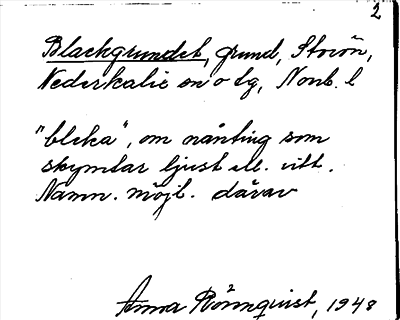 2
Blackgrundet, grund, Storön,
Nederkalix sn o tg, Nonb. l
"bleka", om nånting som
skymtar ljust ell. vitt.
Namn. möjl. därav
Anna Rönnquist, 1948